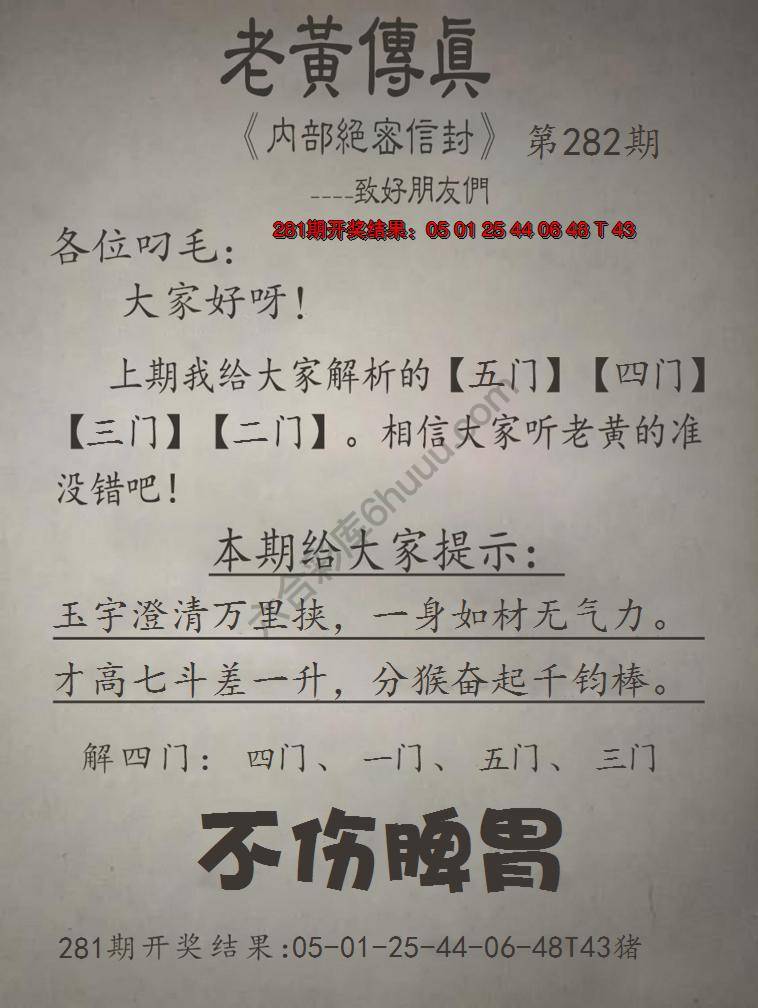 老黃傳眞
《内部絕密信封》 第282期
----致好朋友們
281期开奖结果：05 01 25 44 06 48 T 43
各位叼毛：
大家好呀！
上期我给大家解析的【五门】【四门】
【三门】【二门】。相信大家听老黄的准
没错吧！
本期给大家提示：
玉宇澄清万里挟，一身如材无气力。
才高七斗差一升，分猴奋起千钧棒。
解四门： 四门、 一门、 五门、 三门
不伤脾胃
281期开奖结果:05-01-25-44-06-48T43猪
六合彩库6huuu.com